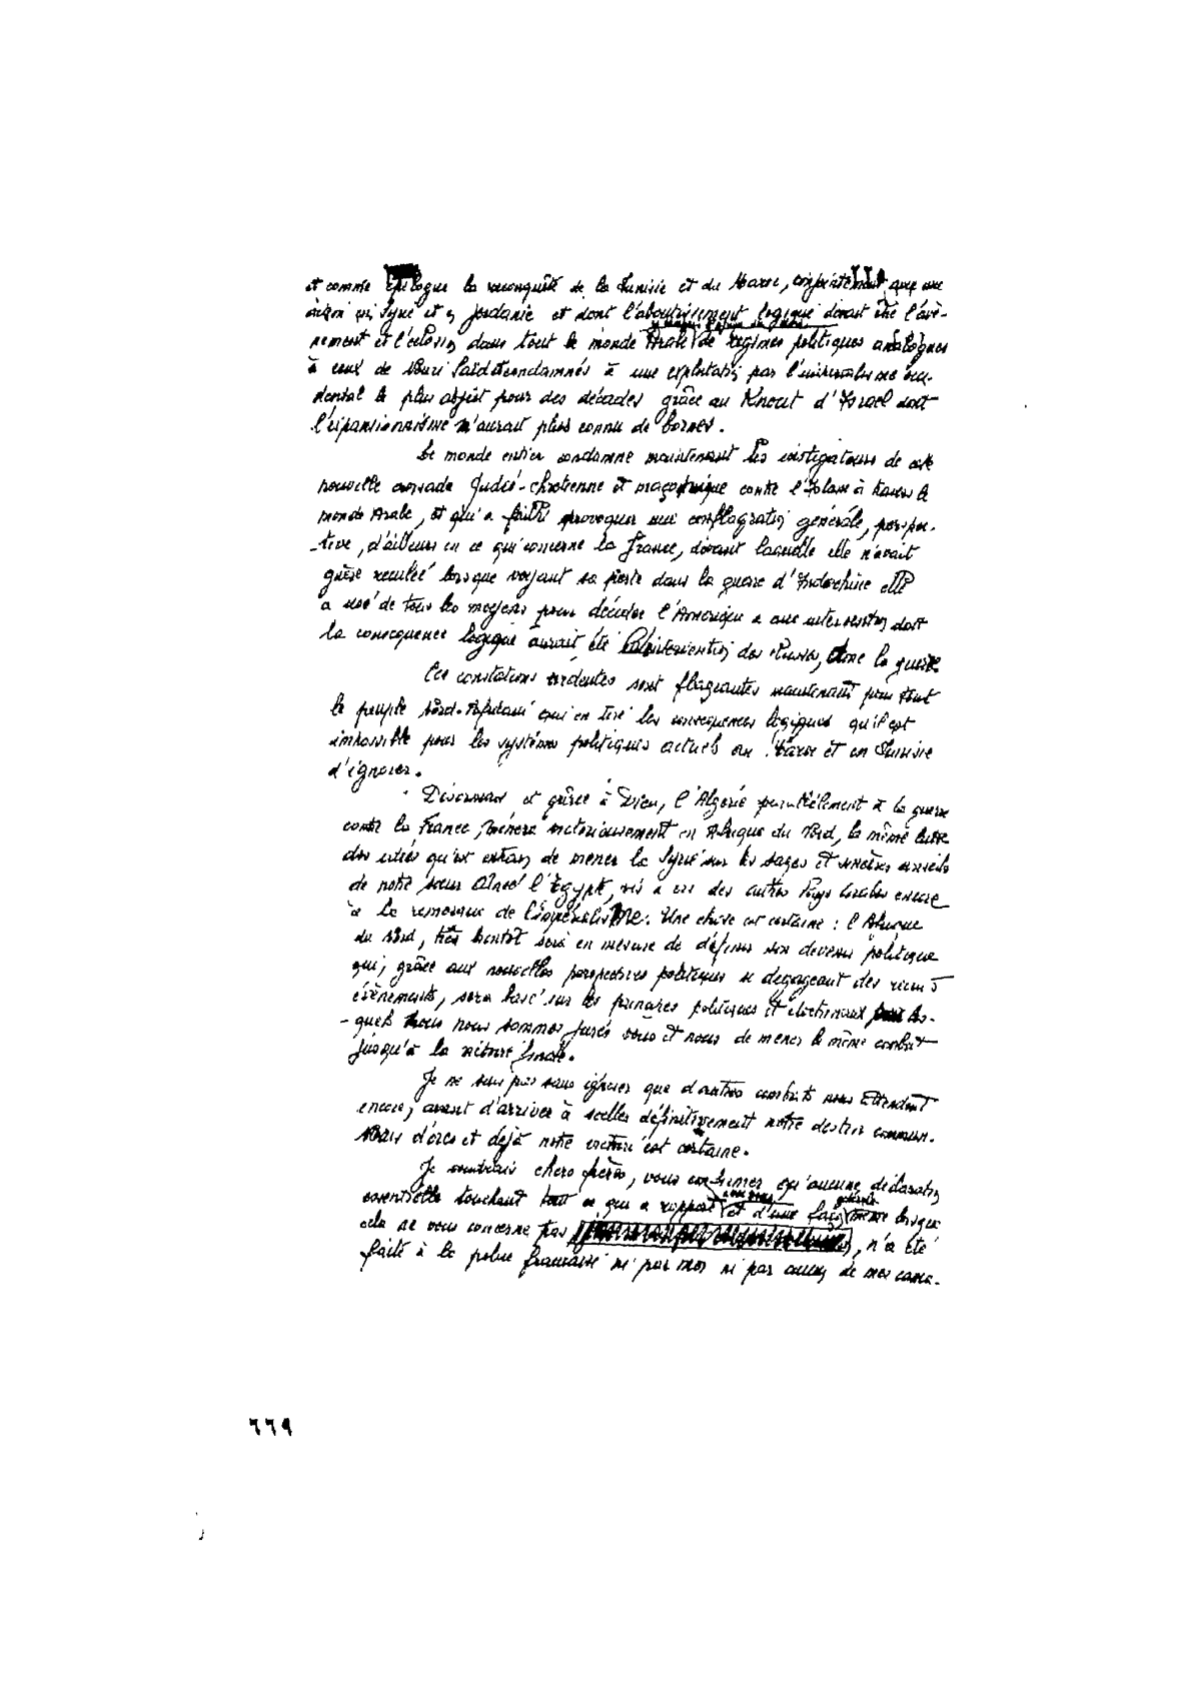 et comme épilogue la reconquête de la Tunisie et du Maroc, conjointement avec une
action en Syrie et en Jordanie et dont l'aboutissement logique devait être l'avè-
nement et l'éclosion dans tout le monde Arabe de régimes politiques analogues
à ceux de Nouri Saïd et condamnés à une exploitation par l'universalisme occi-
dental le plus abject pour des décades grâce au Knout d'Israel dont
l'expansionnisme n'aurait plus connu de bornes.
Le monde entier condamne maintenant les instigateurs de cette
nouvelle croisade Judéo-chrétienne et maçonnique contre l'Islam à travers le
monde Arabe, et qui a failli provoquer une conflagration générale, perspec-
-tive, d'ailleurs en ce qui concerne la France, devant laquelle elle n'avait
guère reculé lorsque voyant sa perte dans la guerre d'Indochine elle
a usé de tous les moyens pour décider l'Amérique a une intervention dont
la conséquence logique aurait été l'intervention des Russes, donc la guerre
Ces constatations évidentes sont flagrantes maintenant pour tout
le peuple Nord-Africain qui en tire les conséquences logiques qu'il est
impossible pour les systèmes politiques actuels au Maroc et en Tunisie
d'ignorer.
Désormais et grâce à Dieu, l'Algérie parallèlement à la guerre
contre la France, mènera victorieusement en Afrique du Nord, la même lutte
des idées qu'est entrain de mener la Syrie sur les sages et sincères conseils
de notre sœur aînée l'Egypte, vis à vis des autres Pays Arabes encore
à la remorque de l'impérialisme. Une chose est certaine : l'Afrique
du Nord, très bientôt sera en mesure de définir son devenir politique
qui, grâce aux nouvelles perspectives politiques se dégageant des récents
évènements, sera basé sur les principes politiques et doctrinaux les-
-quels nous nous sommes jurés vous et nous de mener le même combat
jusqu'à la victoire finale.
Je ne suis pas sans ignorer que d'autres combats nous attendent
encore, avant d'arriver à sceller définitivement notre destin commun.
Mais d'ores et déjà notre victoire est certaine.
Je voudrais chers frères, vous confirmer qu'aucune déclaration
essentielle touchant tout ce qui a rapport et d'une façon générale même lorsque
cela ne vous concerne pas, n'a été
faite à la police française ni par moi ni par aucun de mes cama-
٦٦٩